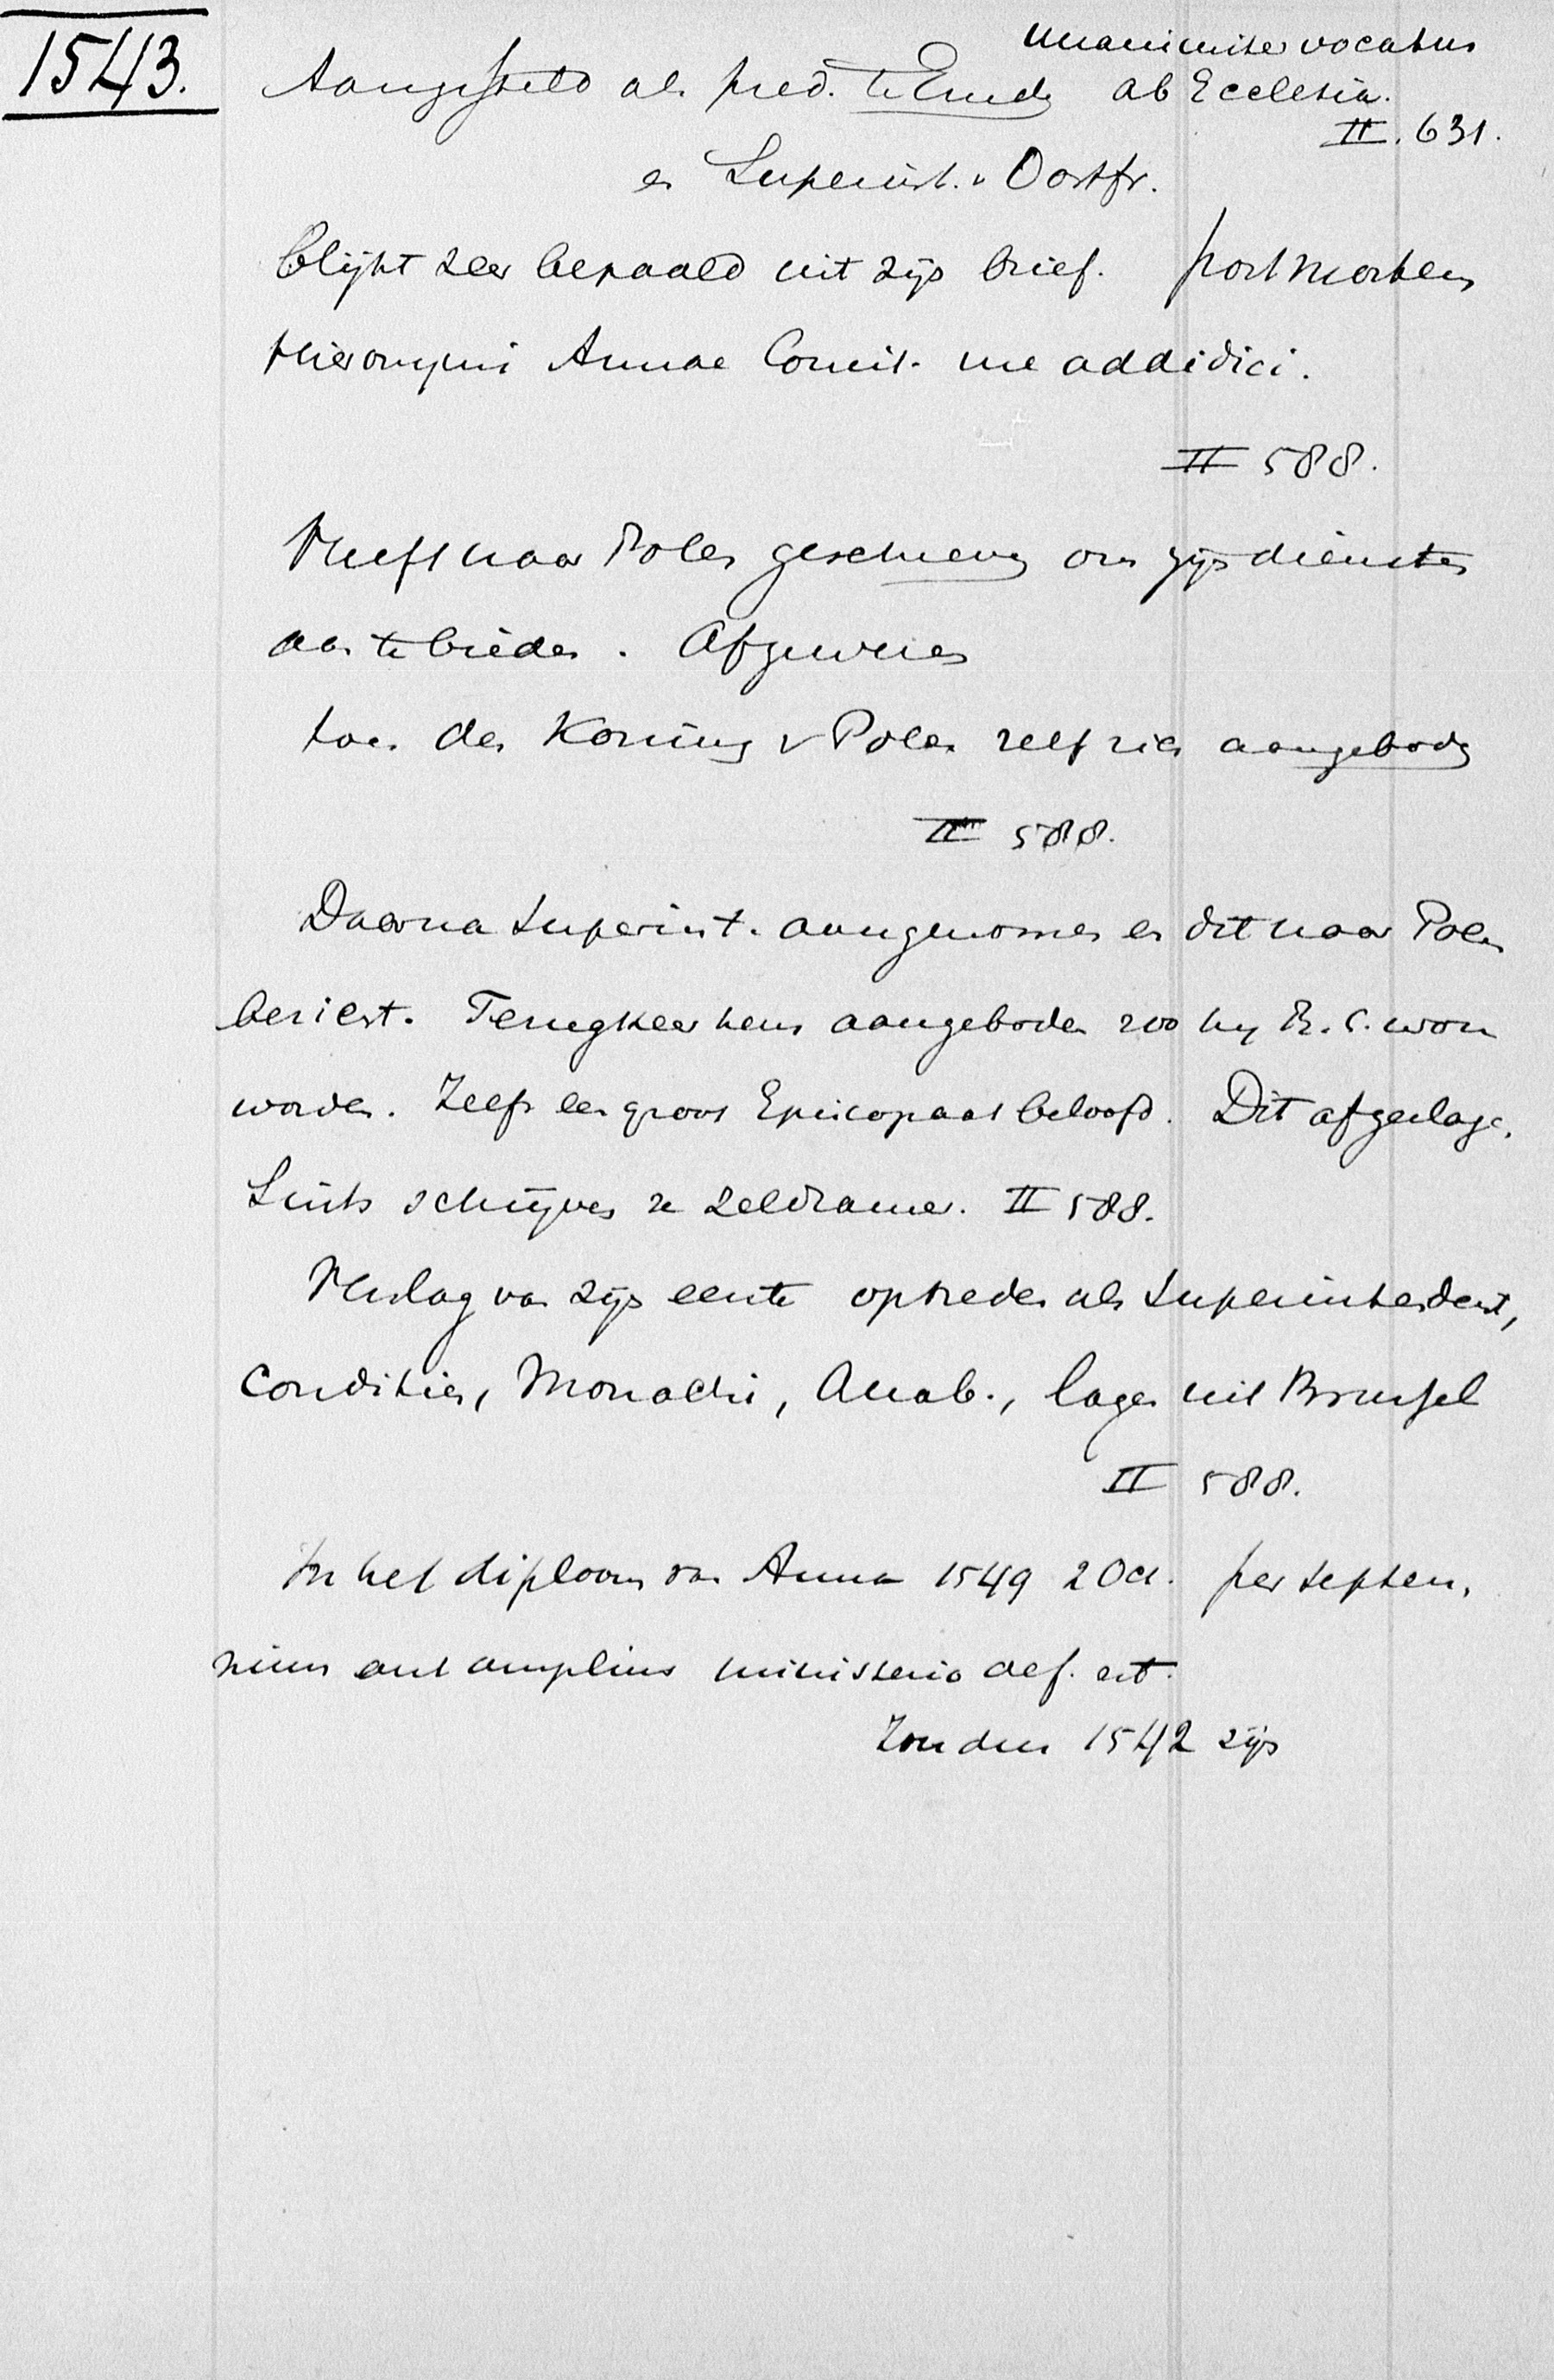 1543.
unanimiter vocatus
Aangesteld als pred. te Emden ab Ecclesia.
II. 631.
en Superint. v Oostfr.
blijkt zeer bepaald uit zijn brief. post mortem
Hieronymi Annae Comit. me addidici.
II 588.
Heeft naar Polen geschreven om zijn diensten
aan te bieden. Afgewezen
toen den Koning v Polen zelf zich aangeboden
II 588.
Daarna Superint. aangenomen en dit naar Polen
bericht. Terugkeer hem aangeboden zoo hij R. C. wou
worden. Zelfs een groot Episcopaat beloofd. Dit afgeslagen.
Sints schrijven ze zeldzamer. II 588.
Verslag van zijn eerste optreden als Superintendent,
Condities, Monachi, Anab., lagen uit Brussel
II 588.
In het diploom van Anna 1549 2 Oct. per septen,
nium aut amplius ministerio def. est.
Zou dus 1542 zijn